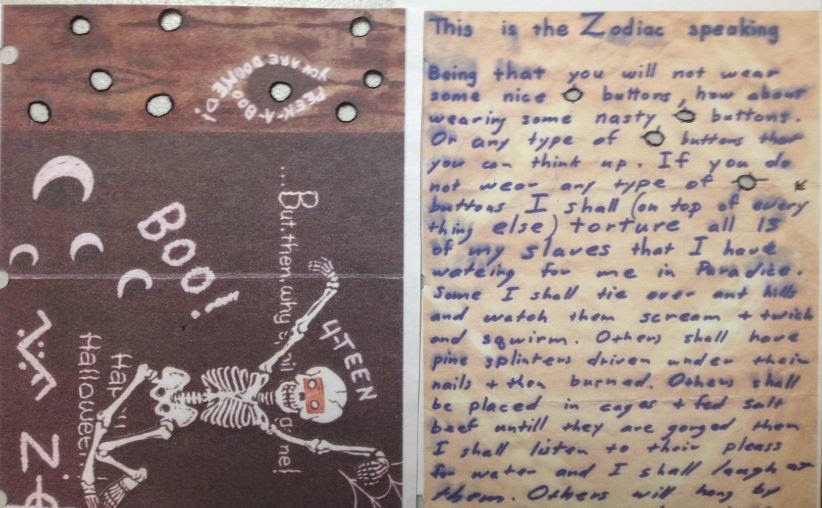 PEEK-A-BOO
YOU ARE DOOMED!
BOO!
...But, then, why
4-TEEN
Happy
Halloween!
Z
This is the Zodiac speaking
Being that you will not wear
some nice buttons, how about
wearing some nasty buttons.
Or any type of buttons that
you can think up. If you do
not wear any type of
buttons I shall (on top of every
thing else) torture all 13
of my slaves that I have
wateing for me in Paradice.
Some I shall tie over ant hills
and watch them scream + twich
and sqwirm. Others shall have
pine splinters driven under their
nails + then burned. Others shall
be placed in cages + fed salt
beef untill they are gorged then
I shall listen to their pleass
for water and I shall laugh at
them. Others will hang by